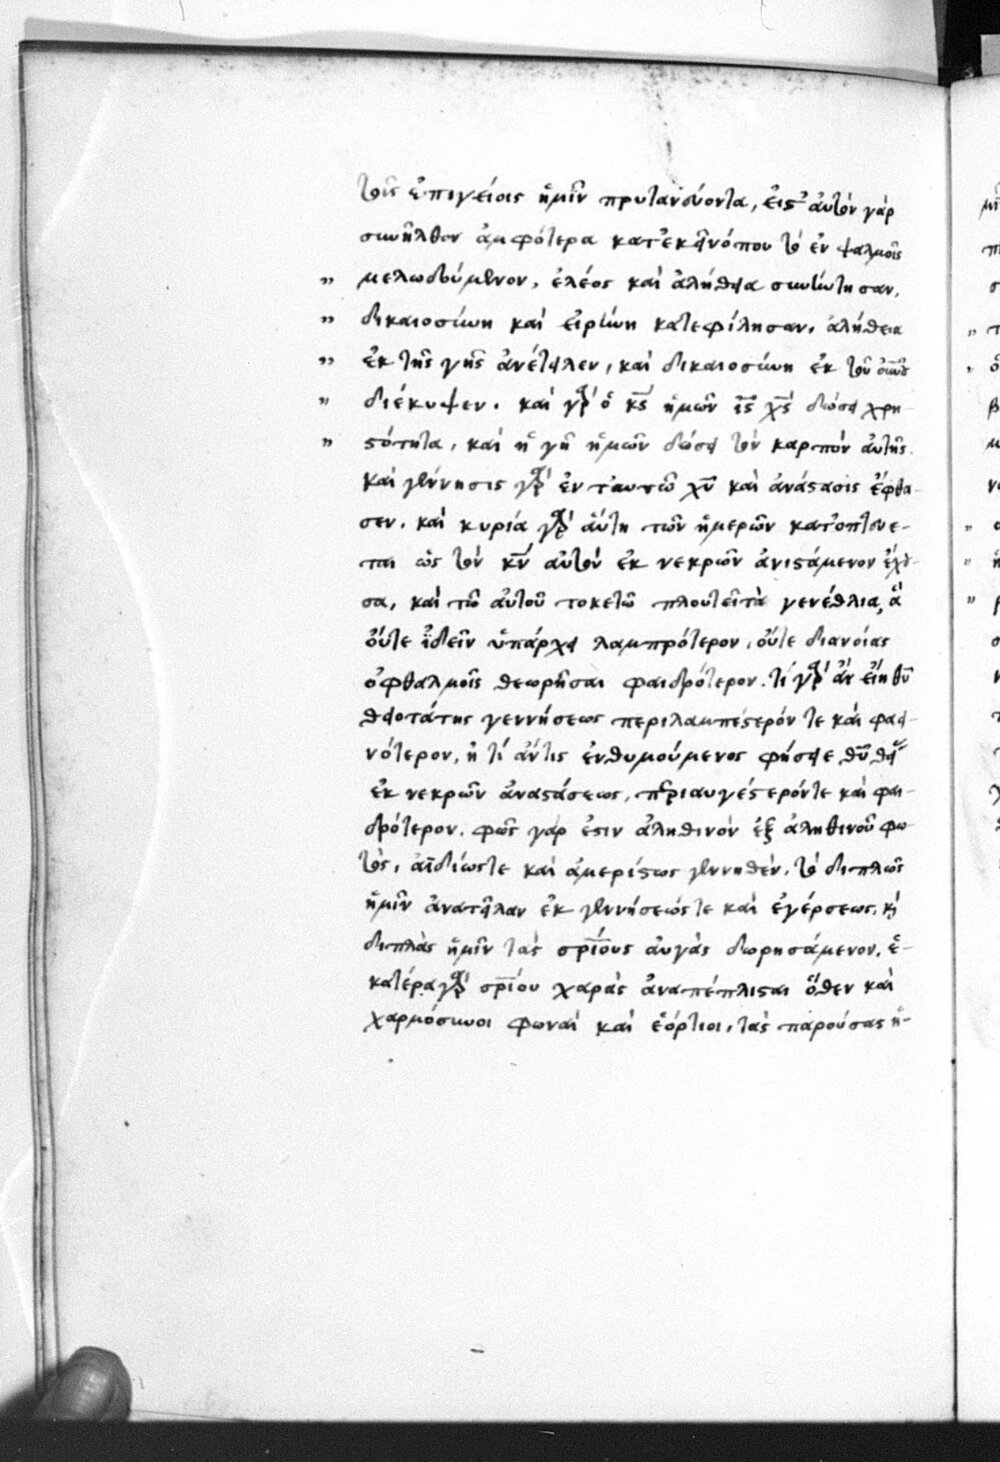 τοῖς ἐπιγείοις ἡμῖν πρυτανεύοντα, εἰς αὐτὸν γὰρ
συνῆλθον ἀμφότερα κατ' ἐκεῖνό που τὸ ἐν ψαλμοῖς
" μελωδούμενον, ἐλέος καὶ ἀλήθεια συνήντησαν,
" δικαιοσύνη καὶ εἰρήνη κατεφίλησαν, ἀλήθεια
" ἐκ τῆς γῆς ἀνέτειλεν, καὶ δικαιοσύνη ἐκ τοῦ οὐνοῦ
" διέκυψεν. καὶ γὰρ ὁ κς ἡμῶν ις χς δώσει χρη-
" στότητα, καὶ ἡ γῆ ἡμῶν δώσει τὸν καρπὸν αὐτῆς.
καὶ γέννησις γὰρ ἐν ταυτῶ χυ καὶ ἀνάστασις ἔφθα-
σεν. καὶ κυρία γὰρ αὕτη τῶν ἡμερῶν κατοπτεύε-
ται ὡς τὸν κν αὐτὸν ἐκ νεκρῶν ἀνιστάμενον ἔχου-
σα, καὶ τῶ αὐτοῦ τοκετῶ πλουτεῖ τὰ γενέθλια, ἃ
οὔτε ἰδεῖν ὑπάρχει λαμπρότερον, οὔτε διανοίας
ὀφθαλμοῖς θεωρῆσαι φαιδρότερον. τί γὰρ ἂν εἴη θυ
θειοτάτης γεννήσεως περιλαμπέστερόν τε καὶ φαει-
νότερον, ἢ τί ἄν τις ἐνθυμούμενος φήσειε, θυ θεί
ἐκ νεκρῶν ἀναστάσεως, περιαυγέστερόν τε καὶ φαι-
δρότερον. φῶς γάρ ἐστιν ἀληθινὸν ἐξ ἀληθινοῦ φω-
τὸς, ἀϊδίως τε καὶ ἀμερίστως γεννηθὲν, τὸ διπλῶς
ἡμῖν ἀνατεῖλαν ἐκ γεννήσεώς τε καὶ ἐγέρσεως, κὶ
διπλὰς ἡμῖν τὰς σρίους αὐγὰς δωρησάμενον, ἑ-
κατέρα γὰρ σρίου χαρᾶς ἀναπέπλησται ὅθεν καὶ
χαρμόσυνοι φωναὶ καὶ ἑόρτιοι, τὰς παρούσας ἡ-